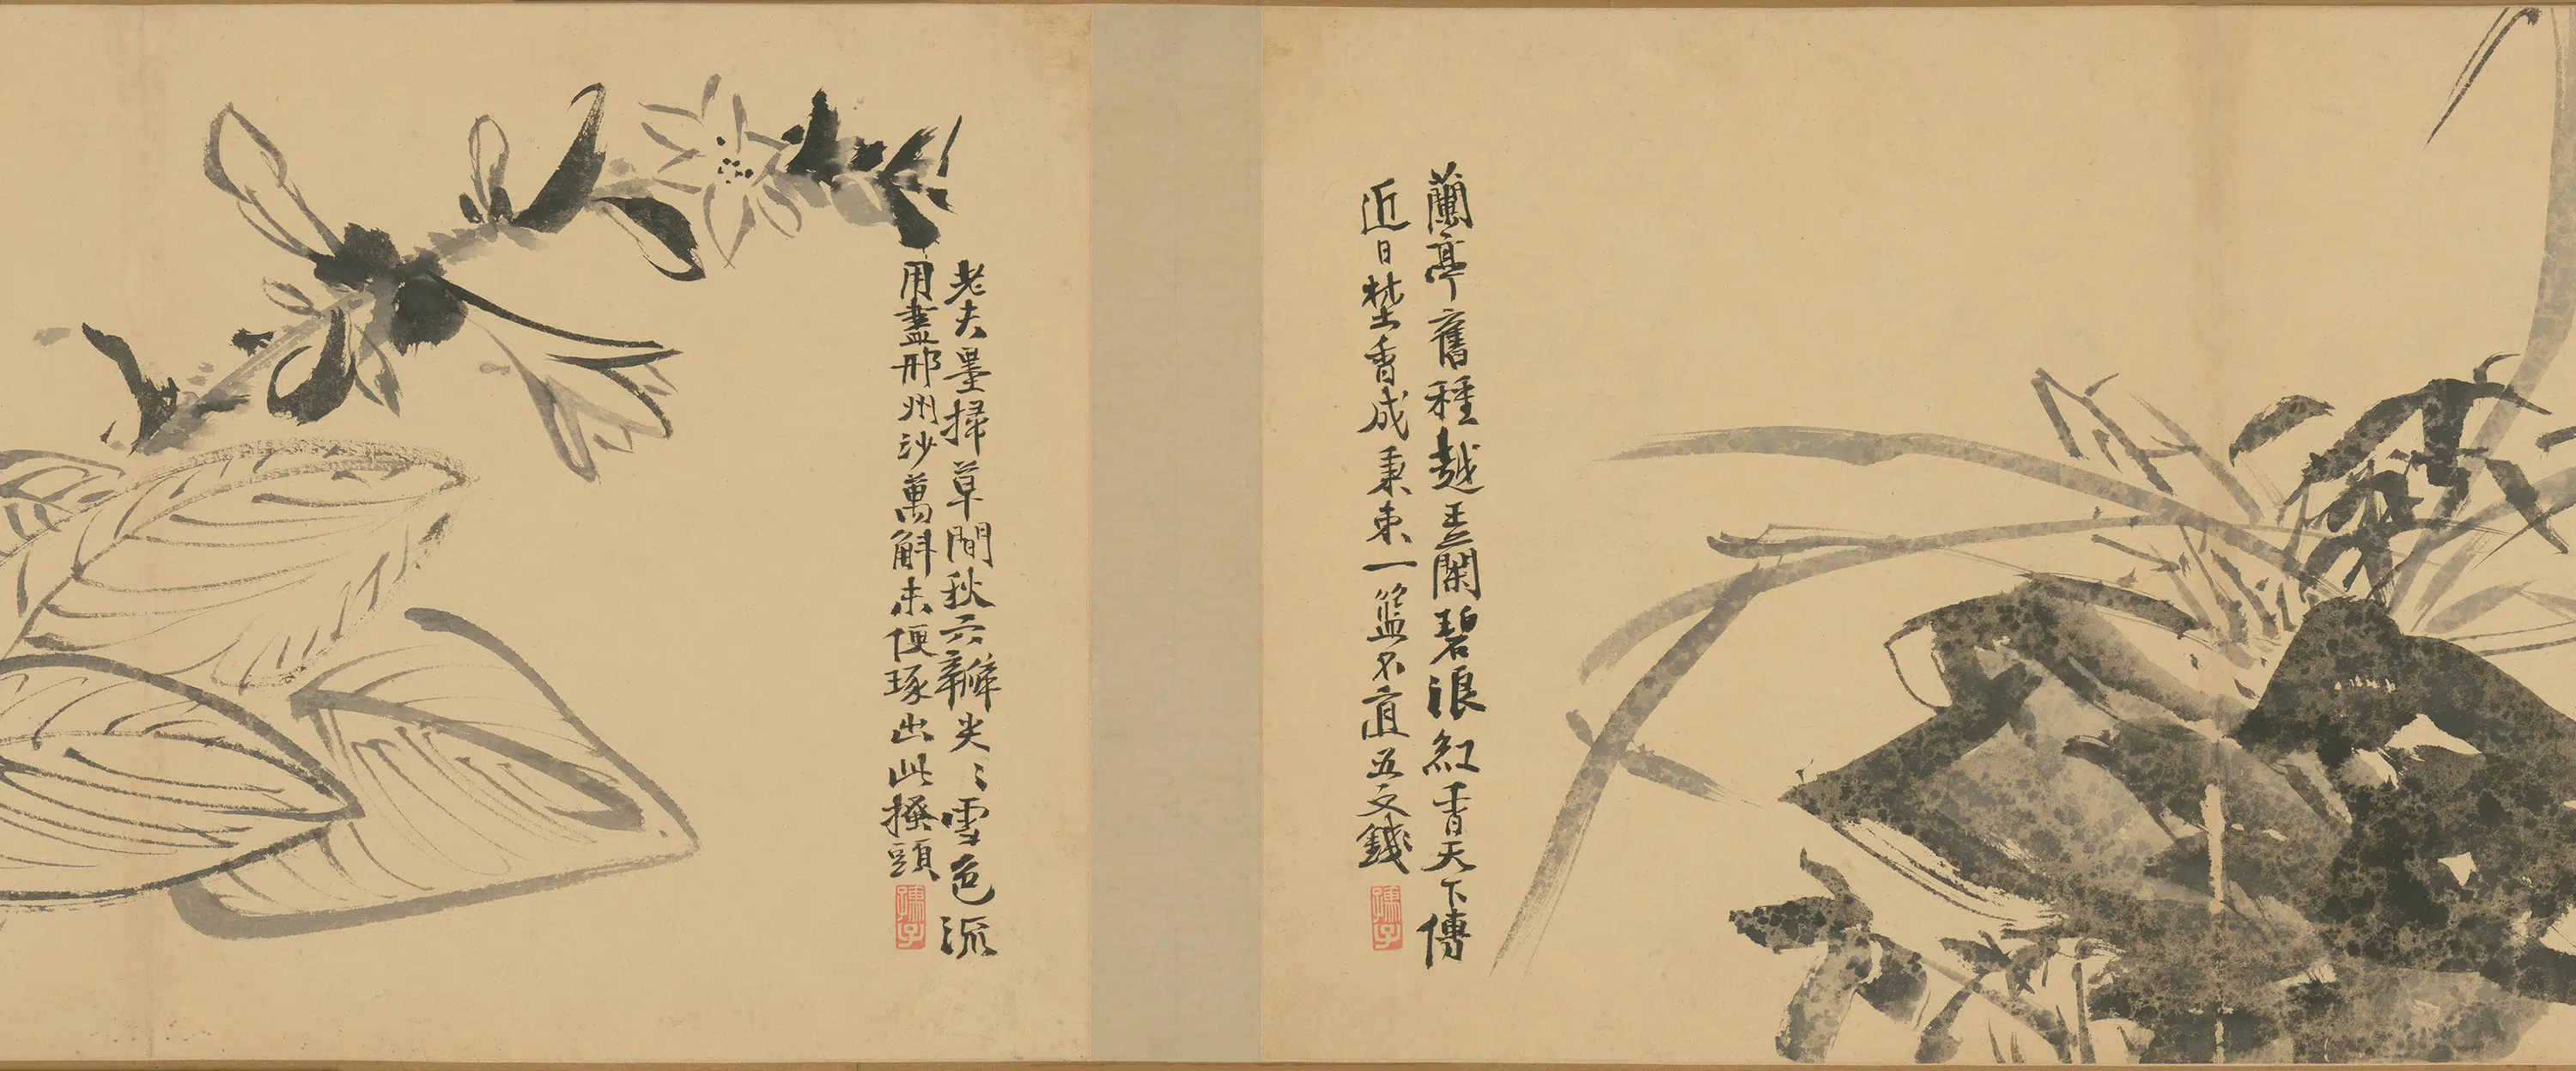 蘭亭舊種越王關碧浪紅香天下傳
近日野香成秉束一籃不直五文錢
老夫墨掃草間秋六瓣尖〻雪色流
用盡邢州沙萬斛未便琢出此搔頭